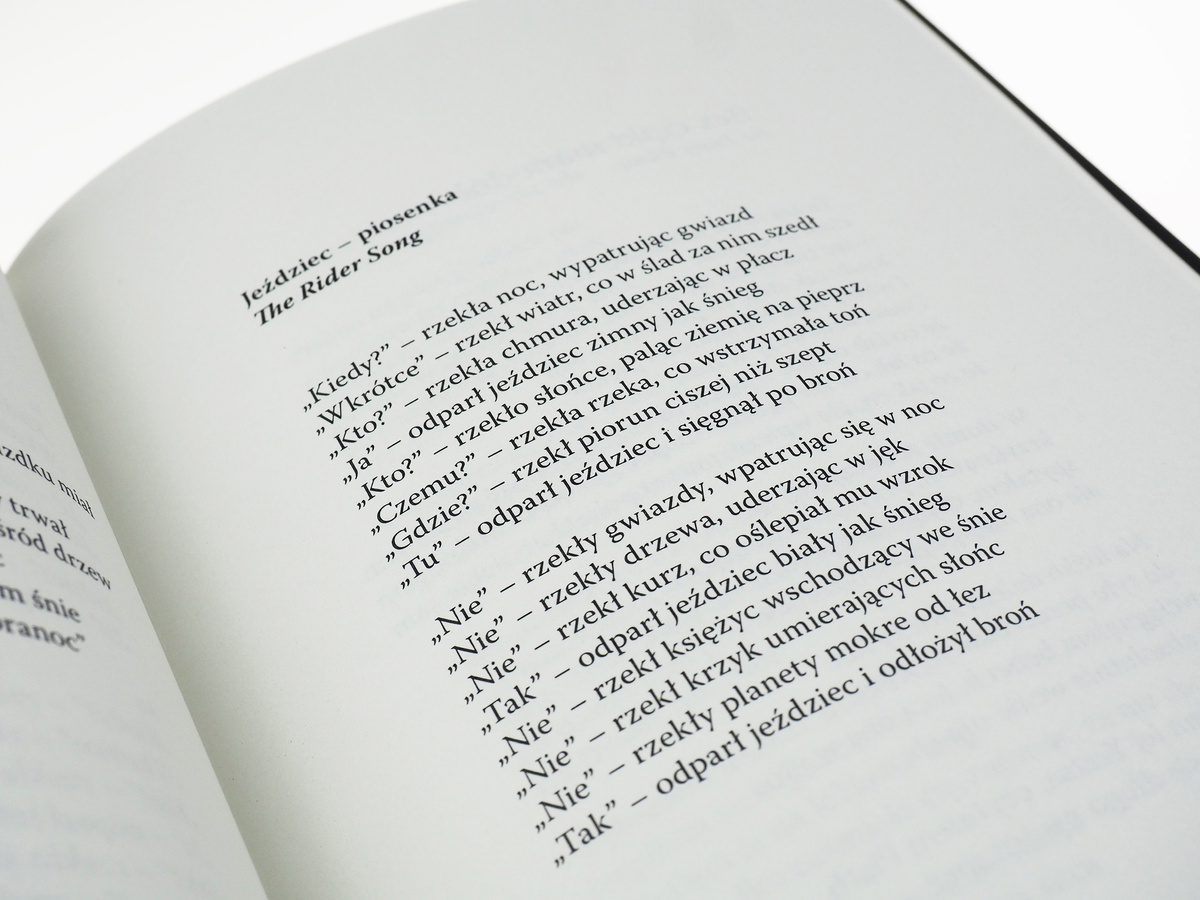 miał
trwał
śród drzew
śnie
Jeździec – piosenka
The Rider Song
„Kiedy?” – rzekła noc, wypatrując gwiazd
„Wkrótce” – rzekł wiatr, co w ślad za nim szedł
„Kto?” – rzekła chmura, uderzając w płacz
„Ja” – odparł jeździec zimny jak śnieg
„Kto?” – rzekło słońce, paląc ziemię na pieprz
„Czemu?” – rzekła rzeka, co wstrzymała toń
„Gdzie?” – rzekł piorun ciszej niż szept
„Tu” – odparł jeździec i sięgnął po broń
„Nie” – rzekły gwiazdy, wpatrując się w noc
„Nie” – rzekły drzewa, uderzając w jęk
„Nie” – rzekł kurz, co oślepiał mu wzrok
„Tak” – odparł jeździec biały jak śnieg
„Nie” – rzekł księżyc wschodzący we śnie
„Nie” – rzekł krzyk umierających słońc
„Nie” – rzekły planety mokre od łez
„Tak” – odparł jeździec i odłożył broń